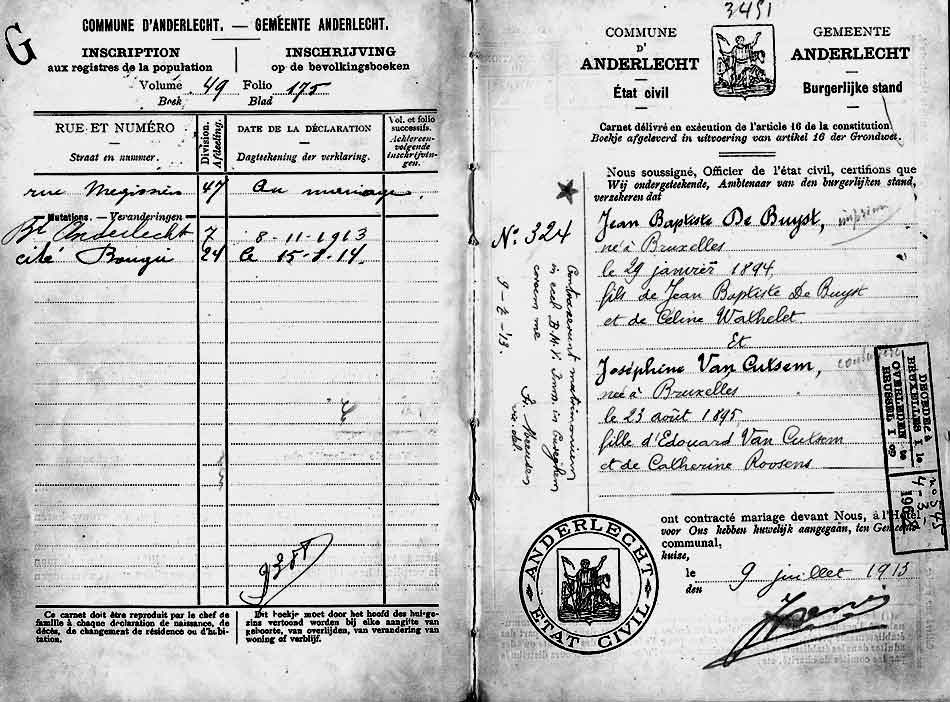 G
COMMUNE D'ANDERLECHT. — GEMEENTE ANDERLECHT.
INSCRIPTION
aux registres de la population
INSCHRIJVING
op de bevolkingsboeken
Volume 49 Folio 175
Boek Blad
RUE ET NUMÉRO
Straat en nummer.
Division.
Afdeeling.
DATE DE LA DÉCLARATION
Dagteekening der verklaring.
Vol. et folio
successifs.
Achtereen-
volgende
inschrijvin-
gen.
rue Megissiers 47 au mariage
Mutations. — Veranderingen
Bd Anderlecht 7 8-11-1913
cité 24
Ce carnet doit être reproduit par le chef de
famille à chaque déclaration de naissance, de
décès, de changement de résidence ou d'habi-
tation.
Dit boekje moet door het hoofd des huisge-
zins vertoond worden bij elke aangifte van
geboorte, van overlijden, van verandering van
woning of verblijf.
3451
COMMUNE
D'
ANDERLECHT
État civil
GEMEENTE
ANDERLECHT
Burgerlijke stand
Carnet délivré en exécution de l'article 16 de la constitution.
Boekje afgeleverd in uitvoering van artikel 16 der Grondwet.
Nous soussigné, Officier de l'état civil, certifions que
Wij ondergeteekende, Ambtenaar van den burgerlijken stand,
verzekeren dat
Jean Baptiste De Buyst,
né à Bruxelles
le 29 janvier 1894,
fils de Jean Baptiste De Buyst
et de Céline Wathelet
Et
Joséphine Van Cutsem,
née à Bruxelles
le 23 août 1895,
fille d'Edouard Van Cutsem
et de Catherine Roosens
No 324
Contraxerunt matrimonium
in eccl. B.M.V. Imm. in Cureghem
coram me
9-7-13.
DÉCÉDÉ(E) à
BRUXELLES I le
OVERLEDEN te
BRUSSEL I op
ont contracté mariage devant Nous, à l'Hôtel
voor Ons hebben huwelijk aangegaan, ten Gemeente-
communal,
huize,
le 9 juillet 1913
den
ANDERLECHT
ETAT CIVIL